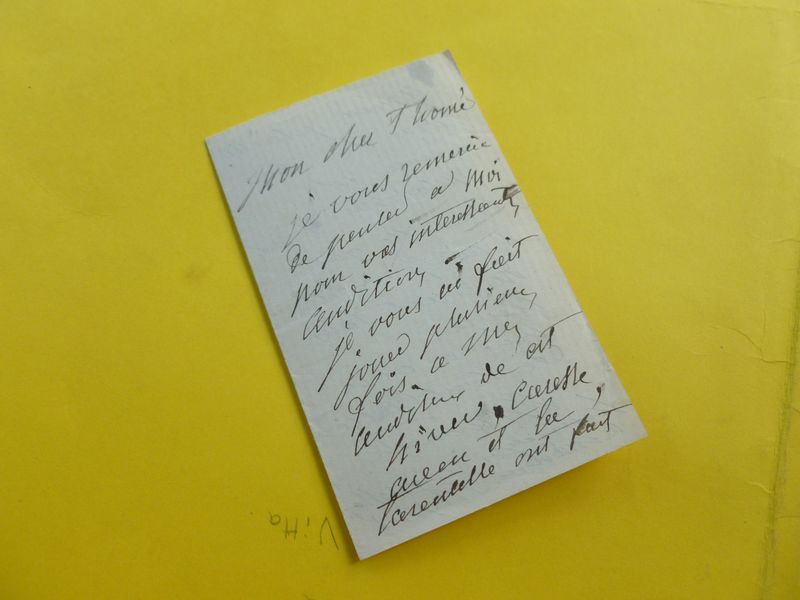 Mon cher Thomé
je vous remercie
de penser à moi
pour vos intéressantes
auditions -
je vous ai fait
jouer plusieurs
fois à mes
auditions de cet
hiver, Caresse
et la
tarentelle ont fait
Vitta